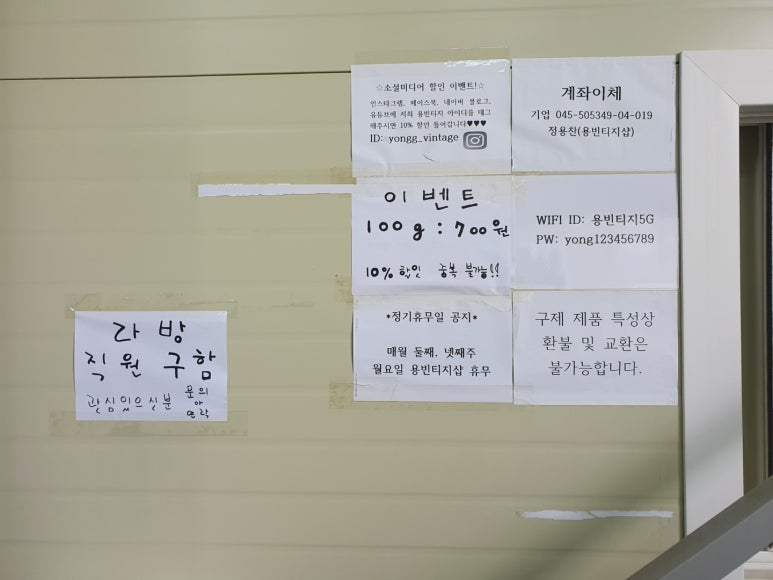 ☆소셜미디어 할인 이벤트!☆
인스타그램, 페이스북, 네이버 블로그,
유튜브에 저희 용빈티지 아이디를 태그
해주시면 10% 할인 들어갑니다♥♥♥
ID: yongg_vintage
계좌이체
기업 045-505349-04-019
정용찬(용빈티지샵)
이벤트
100g : 700원
10% 할인 중복 불가능!!
WIFI ID: 용빈티지5G
PW: yong123456789
*정기휴무일 공지*
매월 둘째, 넷째주
월요일 용빈티지샵 휴무
구제 제품 특성상
환불 및 교환은
불가능합니다.
라방
직원 구함
관심있으신분 문의
or
연락